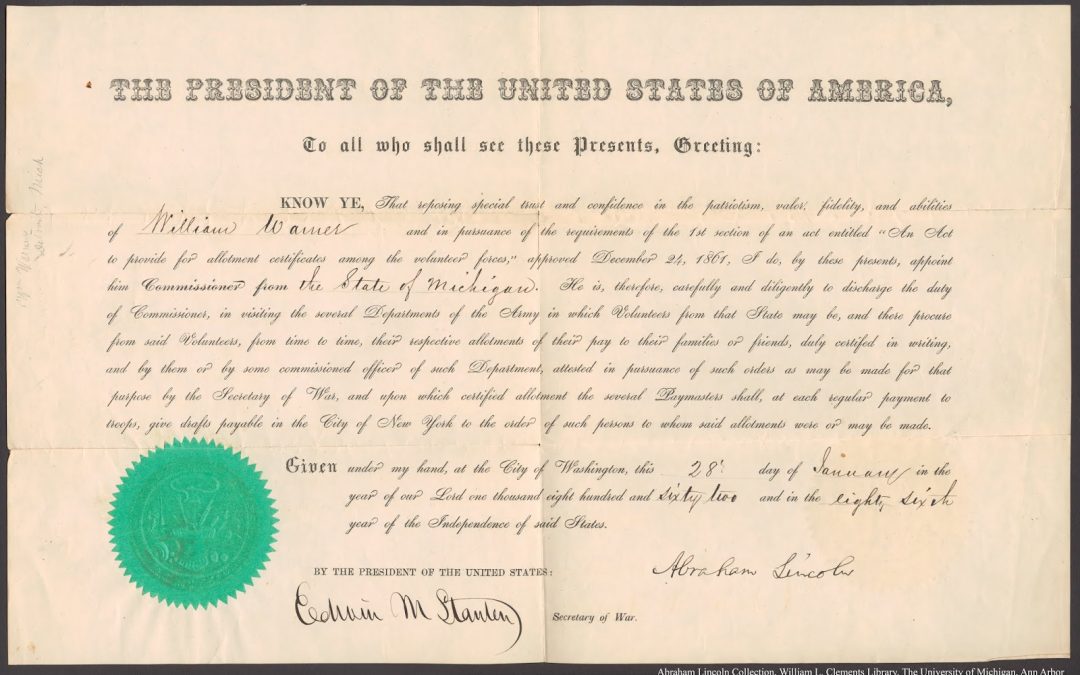 THE PRESIDENT OF THE UNITED STATES OF AMERICA,
To all who shall see these Presents, Greeting:
KNOW YE, That reposing special trust and confidence in the patriotism, valor, fidelity, and abilities
of William Warner and in pursuance of the requirements of the 1st section of an act entitled "An Act
to provide for allotment certificates among the volunteer forces," approved December 24, 1861, I do, by these presents, appoint
him Commissioner from the State of Michigan. He is, therefore, carefully and diligently to discharge the duty
of Commissioner, in visiting the several Departments of the Army in which Volunteers from that State may be, and there procure
from said Volunteers, from time to time, their respective allotments of their pay to their families or friends, duly certifed in writing,
and by them or by some commissioned officer of such Department, attested in pursuance of such orders as may be made for that
purpose by the Secretary of War, and upon which certified allotment the several Paymasters shall, at each regular payment to
troops, give drafts payable in the City of New York to the order of such persons to whom said allotments were or may be made.
Given under my hand, at the City of Washington, this 28th day of January in the
year of our Lord one thousand eight hundred and sixty two and in the eighty sixth
year of the Independence of said States.
Abraham Lincoln
BY THE PRESIDENT OF THE UNITED STATES:
Edwin M Stanton
Secretary of War.
Abraham Lincoln Collection, William L. Clements Library, The University of Michigan, Ann Arbor